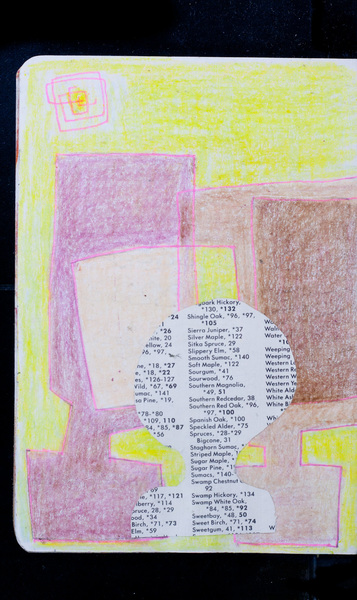 ark Hickory,
*130, *132
Shingle Oak, *96, *97,
*105
Sierra Juniper, *37
Silver Maple, *122
Sitka Spruce, 29
Slippery Elm, *58
Smooth Sumac, *140
Soft Maple, *122
Sourgum, *41
Sourwood, *76
Southern Magnolia,
*49, 51
Southern Redcedar, 38
Southern Red Oak, *96,
*97, *100
Spanish Oak, *100
Speckled Alder, *75
Spruces, *28-*29
Bigcone, 31
Staghorn Sumac,
Striped Maple,
Sugar Maple,
Sugar Pine,
Sumacs, *140-
Swamp Chestnut
92
Swamp Hickory, *134
Swamp White Oak,
*84, *85, *92
Sweetbay, *48, 50
Sweet Birch, *71, *74
Sweetgum, 41, *113
24
*26
hite, 20
ellow, 24
*96, *97,
ne, *18, *27
*18, *22
es, *126-127
Vild, *67, *69
umac, *141
as Pine, *19,
*78-*80
*109, 110
*84, *85, *87
*56
69
e, *117, *121
lberry, *114
ruce, 28, *29
od, *34
Birch, *71, *73
Elm, *59
W
Waln
Water
*10
Weeping
Weeping
Western L
Western R
Western W
Western Te
White Ald
White Ash
White B
W